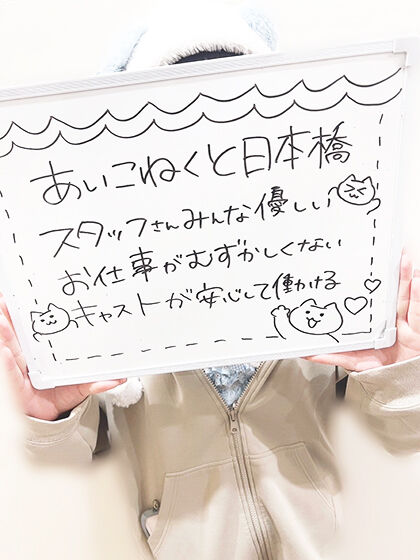 あいこねくと日本橋
スタッフさんみんな優しい
お仕事がむずかしくない
キャストが安心して働かける